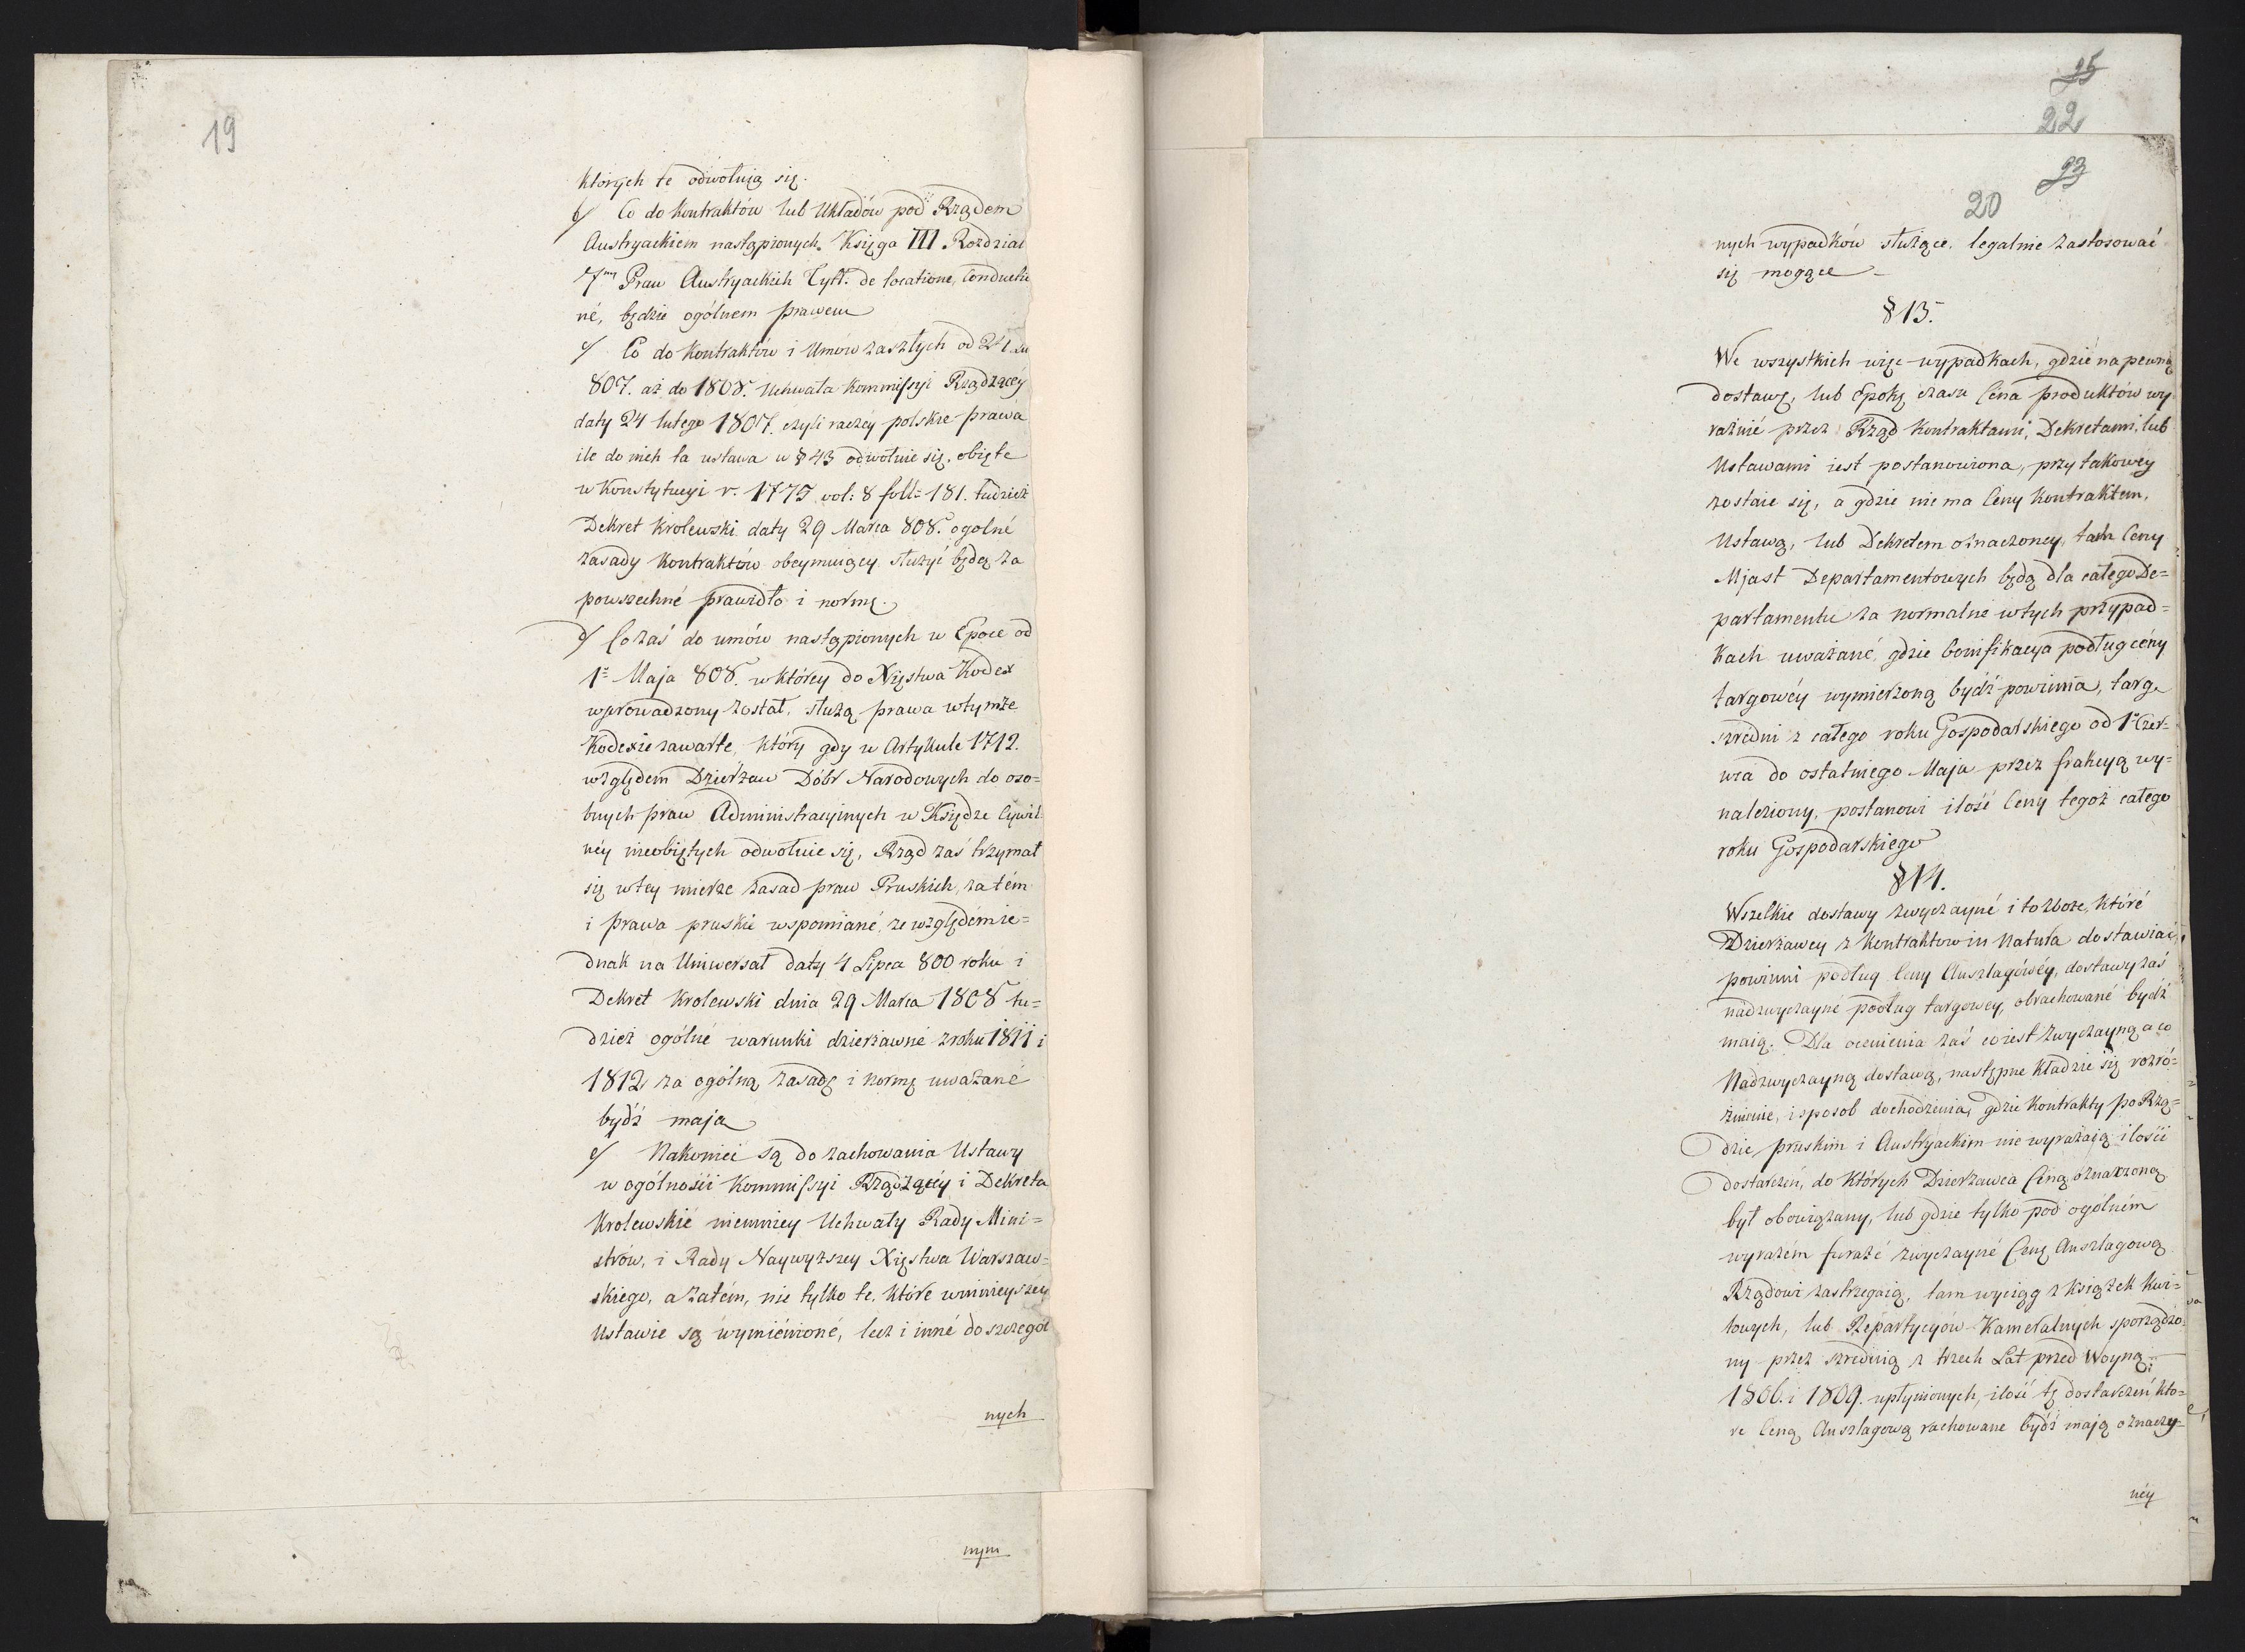 19
których te odwołuią się.
b/ Co do kontraktów lub Układów pod Rządem
Austryackiem nastąpionych. Księga III Rozdział
7my Praw Austryackich Tytł. de locatione, Conductio
né, będzie ogólnem prawem
c/ Co do Kontraktów i Umow zaszłych od 24
807. aż do 1808. Uchwała Kommissyi Rządzącéy
daty 24 lutego 1807. czyli raczéy polskie prawa
ile do nich ta ustawa w § 43 odwołuie się, obięte
w Konstytucyi r. 1775 vol: 8 foll: 181. tudzież
Dekret Krolewski daty 29 Marca 808. ogolné
zasady Kontraktów obeymuiący służyć będą za
powszechné prawidło i normę.
d/ Co zaś do umów nastąpionych w Epoce od
1= Maja 808. w którey do Xięstwa Kodex
wprowadzony został, służą prawa w tymże
Kodexie zawarte, który gdy w Artykule 1712.
względem Dzierżaw Dóbr Narodowych do oso=
bnych praw Administracyinych w Księdze Cywil
néy nieobiętych odwołuie się, Rząd zaś trzymał
się w tey mierze zasad praw Pruskich, zatém
i prawa pruskie wspomiané, ze względém ie=
dnak na Uniwersał daty 4 Lipca 800 roku i
Dekret Krolewski dnia 29 Marca 1808 tu=
dzież ogólné warunki dzierżawné z roku 1811 i
1812 za ogólną zasadę i normę uważané
bydź maja
e/ Nakoniec są do zachowania Ustawy
w ogólności Kommissyi Rządzącéy i Dekreta
Krolewskié niemniey Uchwały Rady Mini=
strów, i Rady Naywyższey Xięstwa Warszaw=
skiego, a zatém, nie tylko te, które w ninieyszéy
Ustawie są wymiénioné, lecz i inné do szczegól
nych
nym
25
22
23
20
nych wypadków służące, legalnie zastosować
się mogące
§ 13.
We wszystkich więc wypadkach, gdzie na pewną
dostawę, lub Epokę czasu Cena produktów wy
raźnié przez Rząd Kontraktami, Dekretami, lub
Ustawami iest postanowiona, przy takowéy
zostaie się, a gdzie nie ma Ceny Kontraktem,
Ustawą, lub Dekretem oznaczoney, tam Ceny
Mjast Departamentowych będą dla całego De=
partamentu za normalne w tych przypad=
kach uważané, gdzie bonifikacya podług cény
targowéy wymierzoną bydź powinna, targ
szredni z całego roku Gospodarskiego od 1o Czer=
wca do ostatniego Maja przez frakcyą wy=
naleziony, postanowi ilość Ceny tegoż całego
roku Gospodarskiego
§ 14.
Wszelkie dostawy zwyczayné i to zboże, któré
Dzierżawcy z Kontraktow in Natura dostawiać
powinni podług Ceny Anszlagówéy, dostawy zaś
nadzwyczayné podług targowey, obrachowané bydź
maią. Dla ocenienia zaś co iest zwyczayną a co
Nadzwyczayną dostawą, następne kładzie się rozró=
żnienie, i sposob dochodzenia, gdzie Kontrakty po Rzą=
dzie pruskim i Austryackim nie wyrażaią ilości
dostarczeń, do których Dzierżawca Ceną oznaczoną
był obowiązany, lub gdzie tylko pod ogólném
wyrazém furaże zwyczayné Cenę Anszlagową
Rządowi zastrzegaią, tam wyciąg z Książek kwi=
towych, lub Repartycyów Kameralnych sporządzo
ny przez szrednią z trzech Lat przed Woyną
1806. i 1809. upłynionych, ilość tę dostarczeń kto=
re Ceną Anszlagową rachowane bydź mają oznaczy=
néy